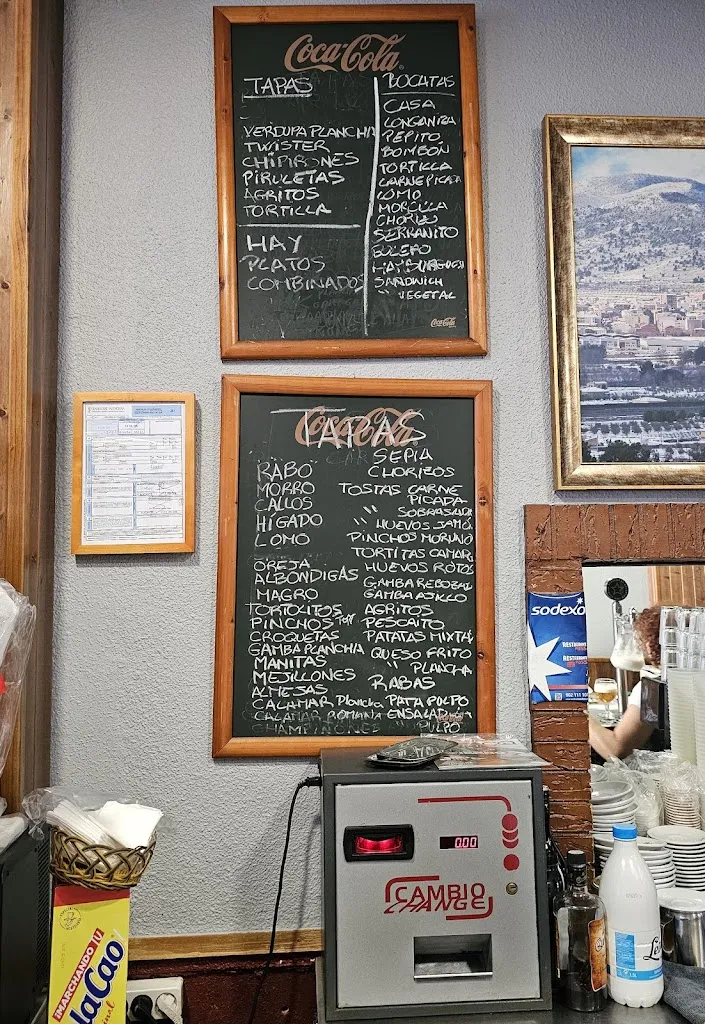 Coca-Cola
TAPAS
VERDURA PLANCHA
TWISTER
CHIPIRONES
PIRULETAS
AGRITOS
TORTILLA
HAY
PLATOS
COMBINADOS
BOCATAS
CASA
LONGANIZA
PEPITO
BOMBON
TORTILLA
CARNE PICADA
LOMO
MORCILLA
CHORIZO
SERRANITO
BOLERO
SANDWICH
" VEGETAL
Coca-Cola
Coca-Cola
TAPAS
RABO
MORRO
CALLOS
HIGADO
LOMO
OREJA
ALBONDIGAS
MAGRO
TORTOLITOS
PINCHOS
CROQUETAS
GAMBA PLANCHA
MANITAS
MEJILLONES
ALMEJAS
CALAMAR Plancha
CALAMAR ROMANA
CHAMPIÑONES
SEPIA
CHORIZOS
TOSTAS CARNE
PICADA
" SOBRASADA
" HUEVOS JAMO
PINCHOS MORUNO
TORTITAS CAMAR
HUEVOS ROTOS
GAMBA REBOZAD
GAMBA AJILLO
AGRITOS
PESCAITO
PATATAS MIXTA
QUESO FRITO
" PLANCHA
RABAS
PATA PULPO
ENSALAD
PULPO
sodexo
0.00
CAMBIO
CHANGE
MARCHANDO
laCao